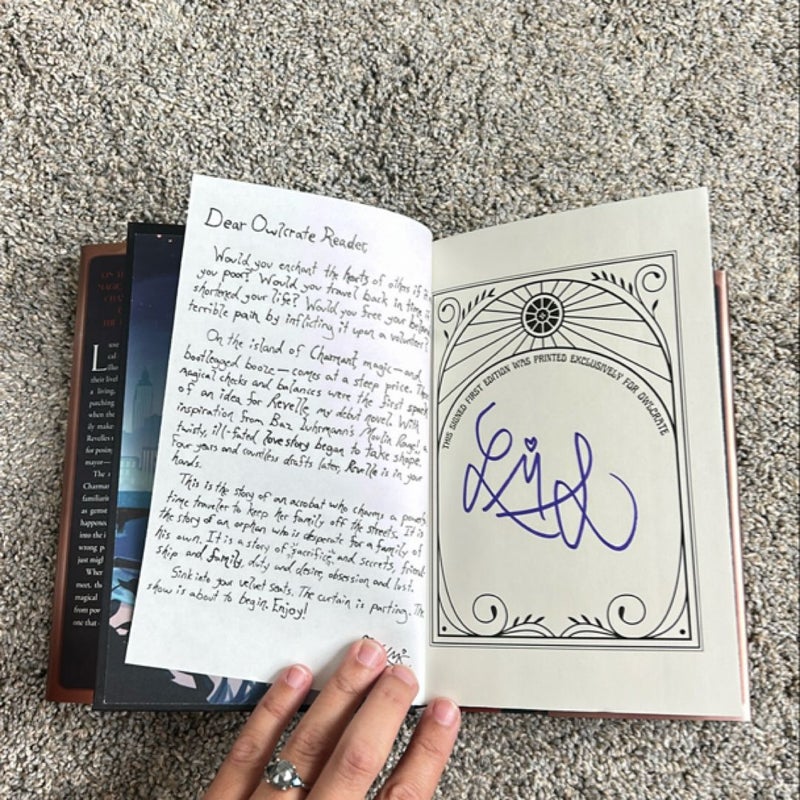 Dear Owlcrate Reader,
Would you enchant the hearts of others if it
you poor? Would you travel back in time if
shortened your life? Would you free your beloved
terrible pain by inflicting it upon a volunteer?
On the island of Charmant, magic—and
bootlegged booze—comes at a steep price. These
magical checks and balances were the first spark
of an idea for Revelle, my debut novel. With
inspiration from Baz Luhrmann's Moulin Rouge, a
twisty, ill-fated love story began to take shape.
Four years and countless drafts later, Revelle is in your
hands.
This is the story of an acrobat who charms a powerful
time traveler to keep her family off the streets. It is
the story of an orphan who is desperate for a family of
his own. It is a story of sacrifice and secrets, friend-
ship and family, duty and desire, obsession and lust.
Sink into your velvet seats. The curtain is parting. The
show is about to begin. Enjoy!
THIS SIGNED FIRST EDITION WAS PRINTED EXCLUSIVELY FOR OWLCRATE
ON TH
MAGIC
CHA
THE
L
their livel
a living,
patching
when the
ily make
Revelles
for posin
mayor—
The
Charman
familiari
as gener
happened
into the i
wrong p
just migh
When
meet, th
magical
from pow
one that